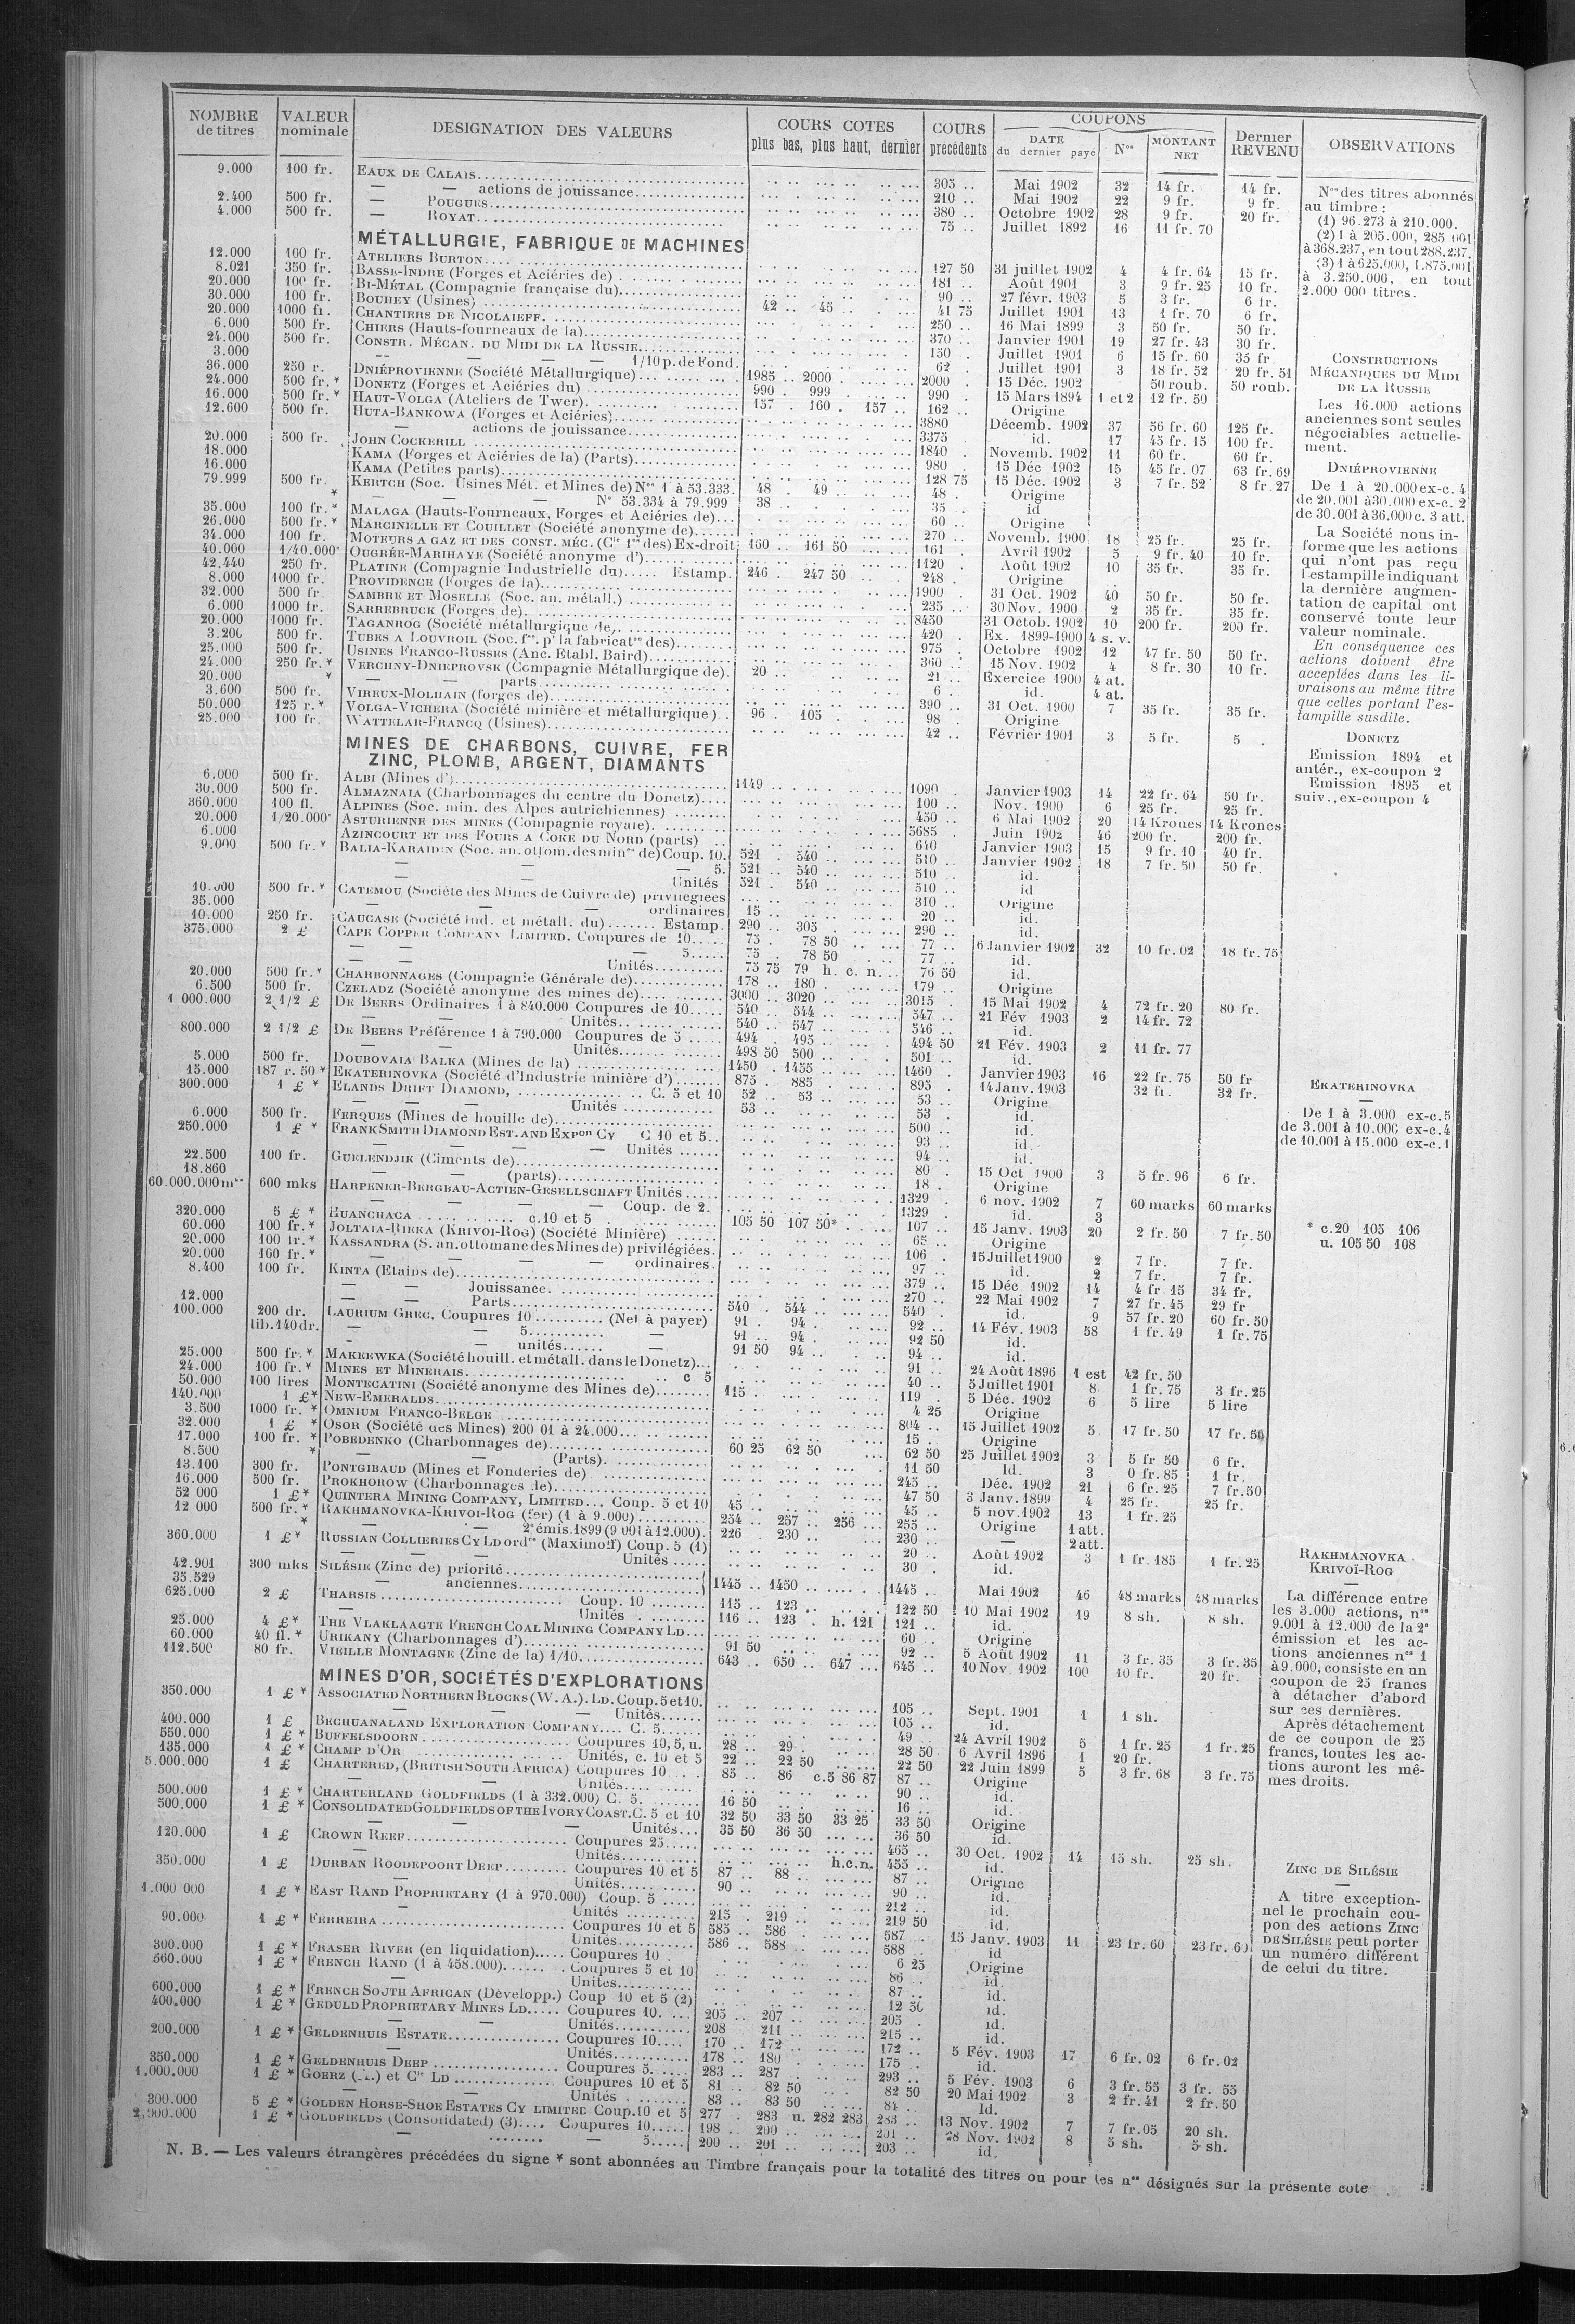 NOMBRE de titres | VALEUR nominale | DESIGNATION DES VALEURS | COURS COTES plus bas, plus haut, dernier | COURS précédents | COUPONS DATE du dernier payé | Nos | MONTANT NET | Dernier REVENU | OBSERVATIONS
9.000 100 fr. EAUX DE CALAIS 305 .. Mai 1902 32 14 fr. 14 fr.
— — actions de jouissance 210 .. Mai 1902 22 9 fr. 9 fr.
2.400 500 fr. — POUGUES 380 .. Octobre 1902 28 9 fr. 20 fr.
4.000 500 fr. — ROYAT 75 .. Juillet 1892 16 11 fr. 70
MÉTALLURGIE, FABRIQUE DE MACHINES
12.000 100 fr. ATELIERS BURTON 127 50 31 juillet 1902 4 4 fr. 64 15 fr.
8.021 350 fr. BASSE-INDRE (Forges et Aciéries de) 181 .. Août 1901 3 9 fr. 25 10 fr.
20.000 100 fr. BI-MÉTAL (Compagnie française du) 90 .. 27 févr. 1903 5 3 fr. 6 fr.
30.000 100 fr. BOUHEY (Usines) 42 .. 45 .. 41 75 Juillet 1901 13 1 fr. 70 6 fr.
20.000 1000 fr. CHANTIERS DE NICOLAIEFF 250 .. 16 Mai 1899 3 50 fr. 50 fr.
6.000 500 fr. CHIERS (Hauts-fourneaux de la) 370 .. Janvier 1901 19 27 fr. 43 30 fr.
24.000 500 fr. CONSTR. MÉCAN. DU MIDI DE LA RUSSIE 150 . Juillet 1901 6 15 fr. 60 35 fr.
3.000 — — — 1/10 p. de Fond. 62 . Juillet 1901 3 18 fr. 52 20 fr. 51
36.000 250 r. DNIÉPROVIENNE (Société Métallurgique) 1985 .. 2000 . 2000 . 15 Déc. 1902 50 roub. 50 roub.
24.000 500 fr.* DONETZ (Forges et Aciéries du) 990 . 999 . 990 . 15 Mars 1894 1 et 2 12 fr. 50
16.000 500 fr.* HAUT-VOLGA (Ateliers de Twer) 157 . 160 . 157 .. 162 .. Origine
12.600 500 fr. HUTA-BANKOWA (Forges et Aciéries) 3880 Décemb. 1902 37 56 fr. 60 125 fr.
— actions de jouissance 3375 id. 17 45 fr. 15 100 fr.
20.000 500 fr. JOHN COCKERILL 1840 . Novemb. 1902 11 60 fr. 60 fr.
18.000 KAMA (Forges et Aciéries de la) (Parts) 980 . 15 Déc 1902 15 45 fr. 07 63 fr. 69
16.000 KAMA (Petites parts) 128 75 15 Déc. 1902 3 7 fr. 52 8 fr 27
79.999 500 fr. * KERTCH (Soc. Usines Mét. et Mines de) Nos 1 à 53.333. 48 . 49 .. 48 . Origine
— — — No 53.334 à 79.999 38 . 35 .. id
35.000 100 fr.* MALAGA (Hauts-Fourneaux, Forges et Aciéries de) 60 .. Origine
26.000 500 fr.* MARCINELLE ET COUILLET (Société anonyme de) 270 .. Novemb. 1900 18 25 fr. 25 fr.
34.000 100 fr. MOTEURS A GAZ ET DES CONST. MÉC. (Cie fse des) Ex-droit 160 .. 161 50 161 . Avril 1902 5 9 fr. 40 10 fr.
40.000 1/40.000e OUGRÉE-MARIHAYE (Société anonyme d') 1120 . Août 1902 10 35 fr. 35 fr.
42.440 250 fr. PLATINE (Compagnie Industrielle du) Estamp. 246 . 247 50 248 . Origine
8.000 1000 fr. PROVIDENCE (Forges de la) 1900 . 31 Oct. 1902 40 50 fr. 50 fr.
32.000 500 fr. SAMBRE ET MOSELLE (Soc. an. métall.) 235 .. 30 Nov. 1900 2 35 fr. 35 fr.
6.000 1000 fr. SARREBRUCK (Forges de) 8450 31 Octob. 1902 10 200 fr. 200 fr.
20.000 1000 fr. TAGANROG (Société métallurgique de) 420 . Ex. 1899-1900 4 s. v.
3.200 500 fr. TUBES A LOUVROIL (Soc. fse. pr la fabricaton des) 975 . Octobre 1902 12 47 fr. 50 50 fr.
25.000 500 fr. USINES FRANCO-RUSSES (Anc. Etabl. Baird) 360 .. 15 Nov. 1902 4 8 fr. 30 10 fr.
24.000 250 fr.* VERCHNY-DNIEPROVSK (Compagnie Métallurgique de) 20 .. 21 .. Exercice 1900 4 at.
20.000 * — — parts 6 . id. 4 at.
3.600 500 fr. VIREUX-MOLHAIN (forges de) 390 .. 31 Oct. 1900 7 35 fr. 35 fr.
50.000 125 r.* VOLGA-VICHERA (Société minière et métallurgique) 96 . 105 . 98 . Origine
25.000 100 fr. WATTELAR-FRANCQ (Usines) 42 .. Février 1901 3 5 fr. 5 .
MINES DE CHARBONS, CUIVRE, FER
ZINC, PLOMB, ARGENT, DIAMANTS
6.000 500 fr. ALBI (Mines d') 1149 .. 1090 . Janvier 1903 14 22 fr. 64 50 fr.
30.000 500 fr. ALMAZNAIA (Charbonnages du centre du Donetz) 100 .. Nov. 1900 6 25 fr. 25 fr.
360.000 100 fl. ALPINES (Soc. min. des Alpes autrichiennes) 450 .. 6 Mai 1902 20 14 Krones 14 Krones
20.000 1/20.000e ASTURIENNE DES MINES (Compagnie royale) 5685 . Juin 1902 46 200 fr. 200 fr.
6.000 AZINCOURT ET DES FOURS A COKE DU NORD (parts) 640 Janvier 1903 15 9 fr. 10 40 fr.
9.000 500 fr.* BALIA-KARAIDIN (Soc. an. ottom. des mines de) Coup. 10. 521 . 540 .. 510 .. Janvier 1902 18 7 fr. 50 50 fr.
— — — 5. 521 .. 540 .. 510 .. id.
— — Unités 521 . 540 .. 510 .. id
10.000 500 fr.* CATEMOU (Société des Mines de Cuivre de) privilégiées 310 .. Origine
35.000 — — ordinaires 15 .. 20 .. id.
10.000 250 fr. CAUCASE (Société ind. et métall. du) Estamp. 290 .. 305 . 290 .. id.
375.000 2 £ CAPE COPPER COMPANY LIMITED. Coupures de 10 75 . 78 50 77 .. 6 Janvier 1902 32 10 fr. 02 18 fr. 75
— — — 5 75 . 78 50 77 .. id.
— — Unités 75 75 79 h. c. n. 76 50 id.
20.000 500 fr.* CHARBONNAGES (Compagnie Générale de) 178 .. 180 . 179 .. Origine
6.500 500 fr. CZELADZ (Société anonyme des mines de) 3000 .. 3020 .. 3015 . 15 Mai 1902 4 72 fr. 20 80 fr.
1 000.000 2 1/2 £ DE BEERS Ordinaires 1 à 840.000 Coupures de 10 540 .. 544 .. 547 .. 21 Fév 1903 2 14 fr. 72
— — Unités 540 .. 547 .. 546 .. id.
800.000 2 1/2 £ DE BEERS Préférence 1 à 790.000 Coupures de 5 494 . 495 .. 494 50 21 Fév. 1903 2 11 fr. 77
— — Unités 498 50 500 .. 501 .. id.
5.000 500 fr. DOUBOVAIA BALKA (Mines de la) 1450 . 1455 .. 1460 . Janvier 1903 16 22 fr. 75 50 fr
15.000 187 r. 50* EKATERINOVKA (Société d'Industrie minière d') 875 .. 885 . 895 . 14 Janv. 1903 32 fr. 32 fr.
300.000 1 £ * ELANDS DRIFT DIAMOND, C. 5 et 10 52 .. 53 .. 53 .. Origine
— — — Unités 53 .. 53 . id.
6.000 500 fr. FERQUES (Mines de houille de) 500 .. id.
250.000 1 £ * FRANK SMITH DIAMOND EST. AND EXPon CY C 10 et 5 93 .. id.
— — Unités 94 .. id.
22.500 100 fr. GUELENDJIK (Ciments de) 80 . 15 Oct 1900 3 5 fr. 96 6 fr.
18.860 — — (parts) 18 . Origine
60.000.000 mks 600 mks HARPENER-BERGBAU-ACTIEN-GESELLSCHAFT Unités 1329 . 6 nov. 1902 7 60 marks 60 marks
— — — Coup. de 2. 1329 . id. 3
320.000 5 £ * HUANCHACA c.10 et 5 105 50 107 50* 107 .. 15 Janv. 1903 20 2 fr. 50 7 fr. 50
60.000 100 fr.* JOLTAIA-RIEKA (KRIVOI-ROG) (Société Minière) 65 .. Origine
20.000 100 fr.* KASSANDRA (S. an. ottomane des Mines de) privilégiées. 106 . 15 Juillet 1900 2 7 fr. 7 fr.
20.000 160 fr.* — — ordinaires. 97 .. id. 2 7 fr. 7 fr.
8.400 100 fr. KINTA (Etains de) 379 .. 15 Déc 1902 14 4 fr 15 34 fr.
— — Jouissance 270 .. 22 Mai 1902 7 27 fr. 45 29 fr
12.000 — — Parts 540 . 544 .. 540 . id. 9 57 fr. 20 60 fr. 50
100.000 200 dr. lib. 140 dr. LAURIUM GREC, Coupures 10 (Net à payer) 91 . 94 . 92 .. 14 Fév. 1903 58 1 fr. 49 1 fr. 75
— — 5 — 91 .. 94 . 92 50 id.
— — unités — 91 50 94 .. 94 .. id.
25.000 500 fr.* MAKEEWKA (Société houill. et métall. dans le Donetz) 91 . 24 Août 1896 1 est 42 fr. 50
24.000 100 fr.* MINES ET MINERAIS c 5 40 .. 5 Juillet 1901 8 1 fr. 75 3 fr. 25
50.000 100 lires MONTECATINI (Société anonyme des Mines de) 115 . 119 . 5 Déc. 1902 6 5 lire 5 lire
140.000 1 £* NEW-EMERALDS 4 25 Origine
3.500 1000 fr. * OMNIUM FRANCO-BELGE 804 .. 15 Juillet 1902 5 17 fr. 50 17 fr. 50
32.000 1 £ * OSOR (Société des Mines) 200 01 à 24.000 15 . Origine
17.000 100 fr. * POBEDENKO (Charbonnages de) 60 25 62 50 62 50 25 Juillet 1902 3 5 fr 50 6 fr.
8.500 * — — (Parts) 11 50 Id. 3 0 fr. 85 1 fr.
13.100 300 fr. PONTGIBAUD (Mines et Fonderies de) 245 .. Déc. 1902 21 6 fr. 25 7 fr. 50
16.000 500 fr. PROKHOROW (Charbonnages de) 47 50 3 Janv. 1899 4 25 fr. 25 fr.
52 000 1 £* QUINTERA MINING COMPANY, LIMITED Coup. 5 et 10 45 .. 45 .. 5 nov. 1902 13 1 fr. 25
12 000 500 fr. * RAKHMANOVKA-KRIVOI-ROG (fer) (1 à 9.000) 254 .. 257 .. 256 255 .. Origine 1 att.
* — — 2e émis. 1899 (9 001 à 12.000). 226 . 230 .. 230 .. — 2 att.
360.000 1 £* RUSSIAN COLLIERIES CY LD ordres (Maximoff) Coup. 5 (1) 20 .. Août 1902 3 1 fr. 185 1 fr. 25
— — Unités 30 . id.
42.901 300 mks SILÉSIE (Zinc de) priorité 1445 .. 1450 .. 1445 .. Mai 1902 46 48 marks 48 marks
35.529 — anciennes
625.000 2 £ THARSIS Coup. 10 115 .. 123 .. 122 50 10 Mai 1902 19 8 sh. 8 sh.
— Unités 116 .. 123 . h. 121 121 .. id.
25.000 4 £* THE VLAKLAAGTE FRENCH COAL MINING COMPANY LD 60 .. Origine
60.000 40 fl.* URIKANY (Charbonnages d') 91 50 92 .. 5 Août 1902 11 3 fr. 35 3 fr. 35
112.500 80 fr. VIEILLE MONTAGNE (Zinc de la) 1/10 643 .. 650 .. 647 645 .. 10 Nov. 1902 100 10 fr. 20 fr.
MINES D'OR, SOCIÉTÉS D'EXPLORATIONS
350.000 1 £ * ASSOCIATED NORTHERN BLOCKS (W. A.). LD. Coup. 5 et 10. 105 .. Sept. 1901 1 1 sh.
— — — Unités 105 .. id.
400.000 1 £ BECHUANALAND EXPLORATION COMPANY C. 5 49 . 24 Avril 1902 5 1 fr. 25 1 fr. 25
550.000 1 £ * BUFFELSDOORN Coupures 10, 5, u. 28 .. 29 . 28 50 6 Avril 1896 1 20 fr.
135.000 1 £ * CHAMP D'OR Unités, c. 10 et 5 22 .. 22 50 22 50 22 Juin 1899 5 3 fr. 68 3 fr. 75
5.000.000 1 £ CHARTERED, (BRITISH SOUTH AFRICA) Coupures 10 85 .. 86 c.5 86 87 87 .. Origine
— — Unités 90 .. id.
500.000 1 £ * CHARTERLAND GOLDFIELDS (1 à 332.000) C. 5. 16 50 16 .. id.
500.000 1 £ * CONSOLIDATED GOLDFIELDS OF THE IVORY COAST. C. 5 et 10 32 50 33 50 33 25 33 50 Origine
— — — Unités 35 50 36 50 36 50 id.
120.000 1 £ CROWN REEF Coupures 25 465 .. 30 Oct. 1902 14 15 sh. 25 sh.
— Unités h.c.n. 455 .. id.
350.000 1 £ DURBAN ROODEPOORT DEEP Coupures 10 et 5 87 .. 88 . 87 .. Origine
— Unités 90 .. 90 .. id.
1.000 000 1 £ * EAST RAND PROPRIETARY (1 à 970.000) Coup. 5 212 .. id.
— — Unités 215 . 219 .. 219 50 id.
90.000 1 £ * FERREIRA Coupures 10 et 5 585 .. 586 .. 587 . 15 Janv. 1903 11 23 fr. 60 23 fr. 60
— Unités 586 .. 588 .. 588 .. id
300.000 1 £ * FRASER RIVER (en liquidation) Coupures 10 6 25 Origine
560.000 1 £ * FRENCH RAND (1 à 458.000) Coupures 5 et 10 86 .. id.
— Unités 87 .. id.
600.000 1 £ * FRENCH SOUTH AFRICAN (Développ.) Coup 10 et 5 (2) 12 50 id.
400.000 1 £ * GEDULD PROPRIETARY MINES LD Coupures 10. 205 .. 207 .. 205 . id.
— — Unités 208 211 .. 215 .. id.
200.000 1 £ * GELDENHUIS ESTATE Coupures 10 170 .. 172 .. 172 .. 5 Fév. 1903 17 6 fr. 02 6 fr. 02
— Unités 178 .. 180 .. 175 .. id.
350.000 1 £ * GELDENHUIS DEEP Coupures 5. 283 .. 287 .. 293 .. 5 Fév. 1903 6 3 fr. 55 3 fr. 55
1.000.000 1 £ * GOERZ (A.) et Cie LD Coupures 10 et 5 81 .. 82 50 82 50 20 Mai 1902 3 2 fr. 41 2 fr. 50
— — Unités 83 .. 83 50 84 .. Id.
300.000 5 £ * GOLDEN HORSE-SHOE ESTATES CY LIMITED Coup. 10 et 5 277 . 283 u. 282 283 283 .. 13 Nov. 1902 7 7 fr. 05 20 sh.
2,000.000 1 £ * GOLDFIELDS (Consolidated) (3) Coupures 10 198 .. 200 .. 201 .. 28 Nov. 1902 8 5 sh. 5 sh.
— — 5 200 .. 201 .. 203 .. id
Nos des titres abonnés
au timbre :
(1) 96.273 à 210.000.
(2) 1 à 205.000, 285.001
à 368.237, en tout 288.237.
(3) 1 à 625.000, 1.875.001
à 3.250.000, en tout
2.000 000 titres.
CONSTRUCTIONS
MÉCANIQUES DU MIDI
DE LA RUSSIE
Les 16.000 actions
anciennes sont seules
négociables actuelle-
ment.
DNIÉPROVIENNE
De 1 à 20.000 ex-c. 4
de 20.001 à 30.000 ex-c. 2
de 30.001 à 36.000 c. 3 att.
La Société nous in-
forme que les actions
qui n'ont pas reçu
l'estampille indiquant
la dernière augmen-
tation de capital ont
conservé toute leur
valeur nominale.
En conséquence ces
actions doivent être
acceptées dans les li-
vraisons au même titre
que celles portant l'es-
tampille susdite.
DONETZ
Emission 1894 et
antér., ex-coupon 2
Emission 1895 et
suiv., ex-coupon 4
EKATERINOVKA
De 1 à 3.000 ex-c. 5
de 3.001 à 10.000 ex-c. 4
de 10.001 à 15.000 ex-c. 1
* c.20 105 106
u. 105 50 108
RAKHMANOVKA
KRIVOÏ-ROG
La différence entre
les 3.000 actions, nos
9.001 à 12.000 de la 2e
émission et les ac-
tions anciennes nos 1
à 9.000, consiste en un
coupon de 25 francs
à détacher d'abord
sur ces dernières.
Après détachement
de ce coupon de 25
francs, toutes les ac-
tions auront les mê-
mes droits.
ZINC DE SILÉSIE
A titre exception-
nel le prochain cou-
pon des actions ZINC
DE SILÉSIE peut porter
un numéro différent
de celui du titre.
N. B. — Les valeurs étrangères précédées du signe * sont abonnées au Timbre français pour la totalité des titres ou pour les nos désignés sur la présente cote